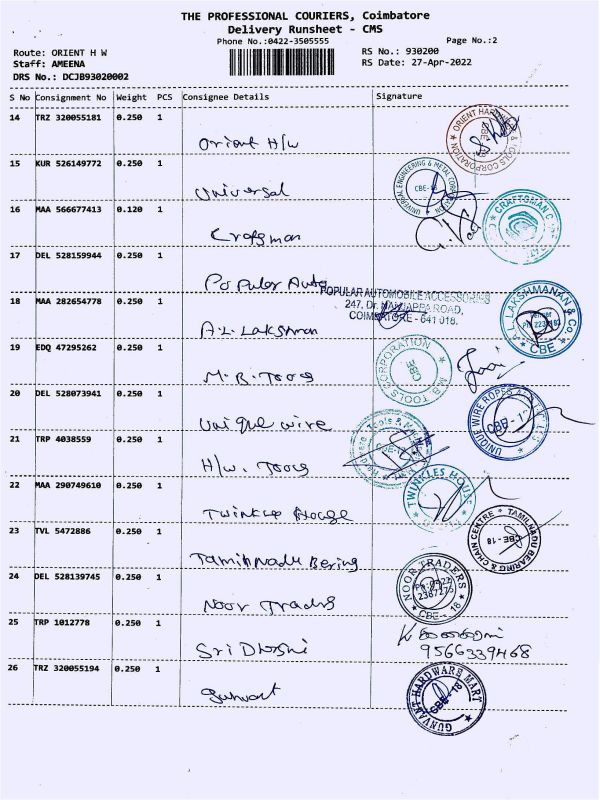 THE PROFESSIONAL COURIERS, Coimbatore
Delivery Runsheet - CMS
Phone No.:0422-3505555
Page No.:2
Route: ORIENT H W
RS No.: 930200
Staff: AMEENA
RS Date: 27-Apr-2022
DRS No.: DCJB93020002
S No Consignment No Weight PCS Consignee Details Signature
14 TRZ 320055181 0.250 1
Orient H/W
ORIENT HARDWARE & TOOLS CORPORATION
CBE
15 KUR 526149772 0.250 1
Universal
UNIVERSAL ENGINEERING & METAL CORPORATION
CBE-18
16 MAA 566677413 0.120 1
Crafsman
CRAFTSMAN
17 DEL 528159944 0.250 1
Popular Auto
POPULAR AUTOMOBILE ACCESSORIES
247, Dr. NANJAPPA ROAD,
COIMBATORE - 641 018.
18 MAA 282654778 0.250 1
A.L. Lakshman
A. L. LAKSHMANAN & Co.
CBE
19 EDQ 47295262 0.250 1
M.B. Tools
M.B. TOOLS CORPORATION
CBE
20 DEL 528073941 0.250 1
Unique wire
UNIQUE WIRE ROPES
CBE - 18
21 TRP 4038559 0.250 1
H/W. Tools
Tools &
22 MAA 290749610 0.250 1
Twinkle House
TWINKLES HOUSE
23 TVL 5472886 0.250 1
Tamilnadu Bering
TAMILNADU BEARING & CHAIN CENTRE
CBE - 18
24 DEL 528139745 0.250 1
Noor Traders
NOOR TRADERS
PH:0422
2387275
CBE - 18
25 TRP 1012778 0.250 1
Sri Dhoshi
9566339468
26 TRZ 320055194 0.250 1
Gunvant
GUNVANT HARDWARE MART
CBE-18